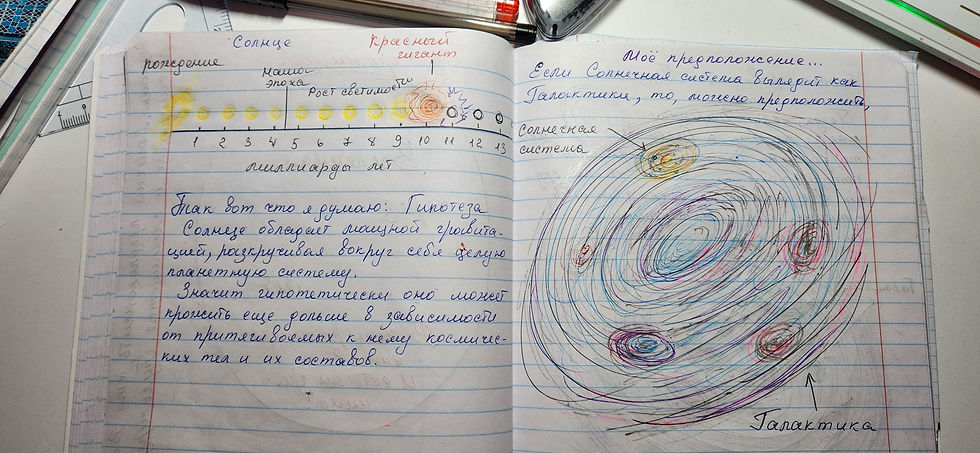 Солнце
Красный
гигант
рождение
Наша
эпоха
Рост светимости
1 2 3 4 5 6 7 8 9 10 11 12 13
миллиарды лет
Так вот что я думаю: Гипотеза
Солнце обладает мощной гравита-
цией, раскручивая вокруг себя целую
планетную систему.
Значит гипотетически оно может
прожить еще дольше в зависимости
от притягиваемых к нему космичес-
ких тел и их составов.
Моё предположение...
Если Солнечная система выглядит как
Галактики, то, можно предположить,
Солнечная
система
Галактика